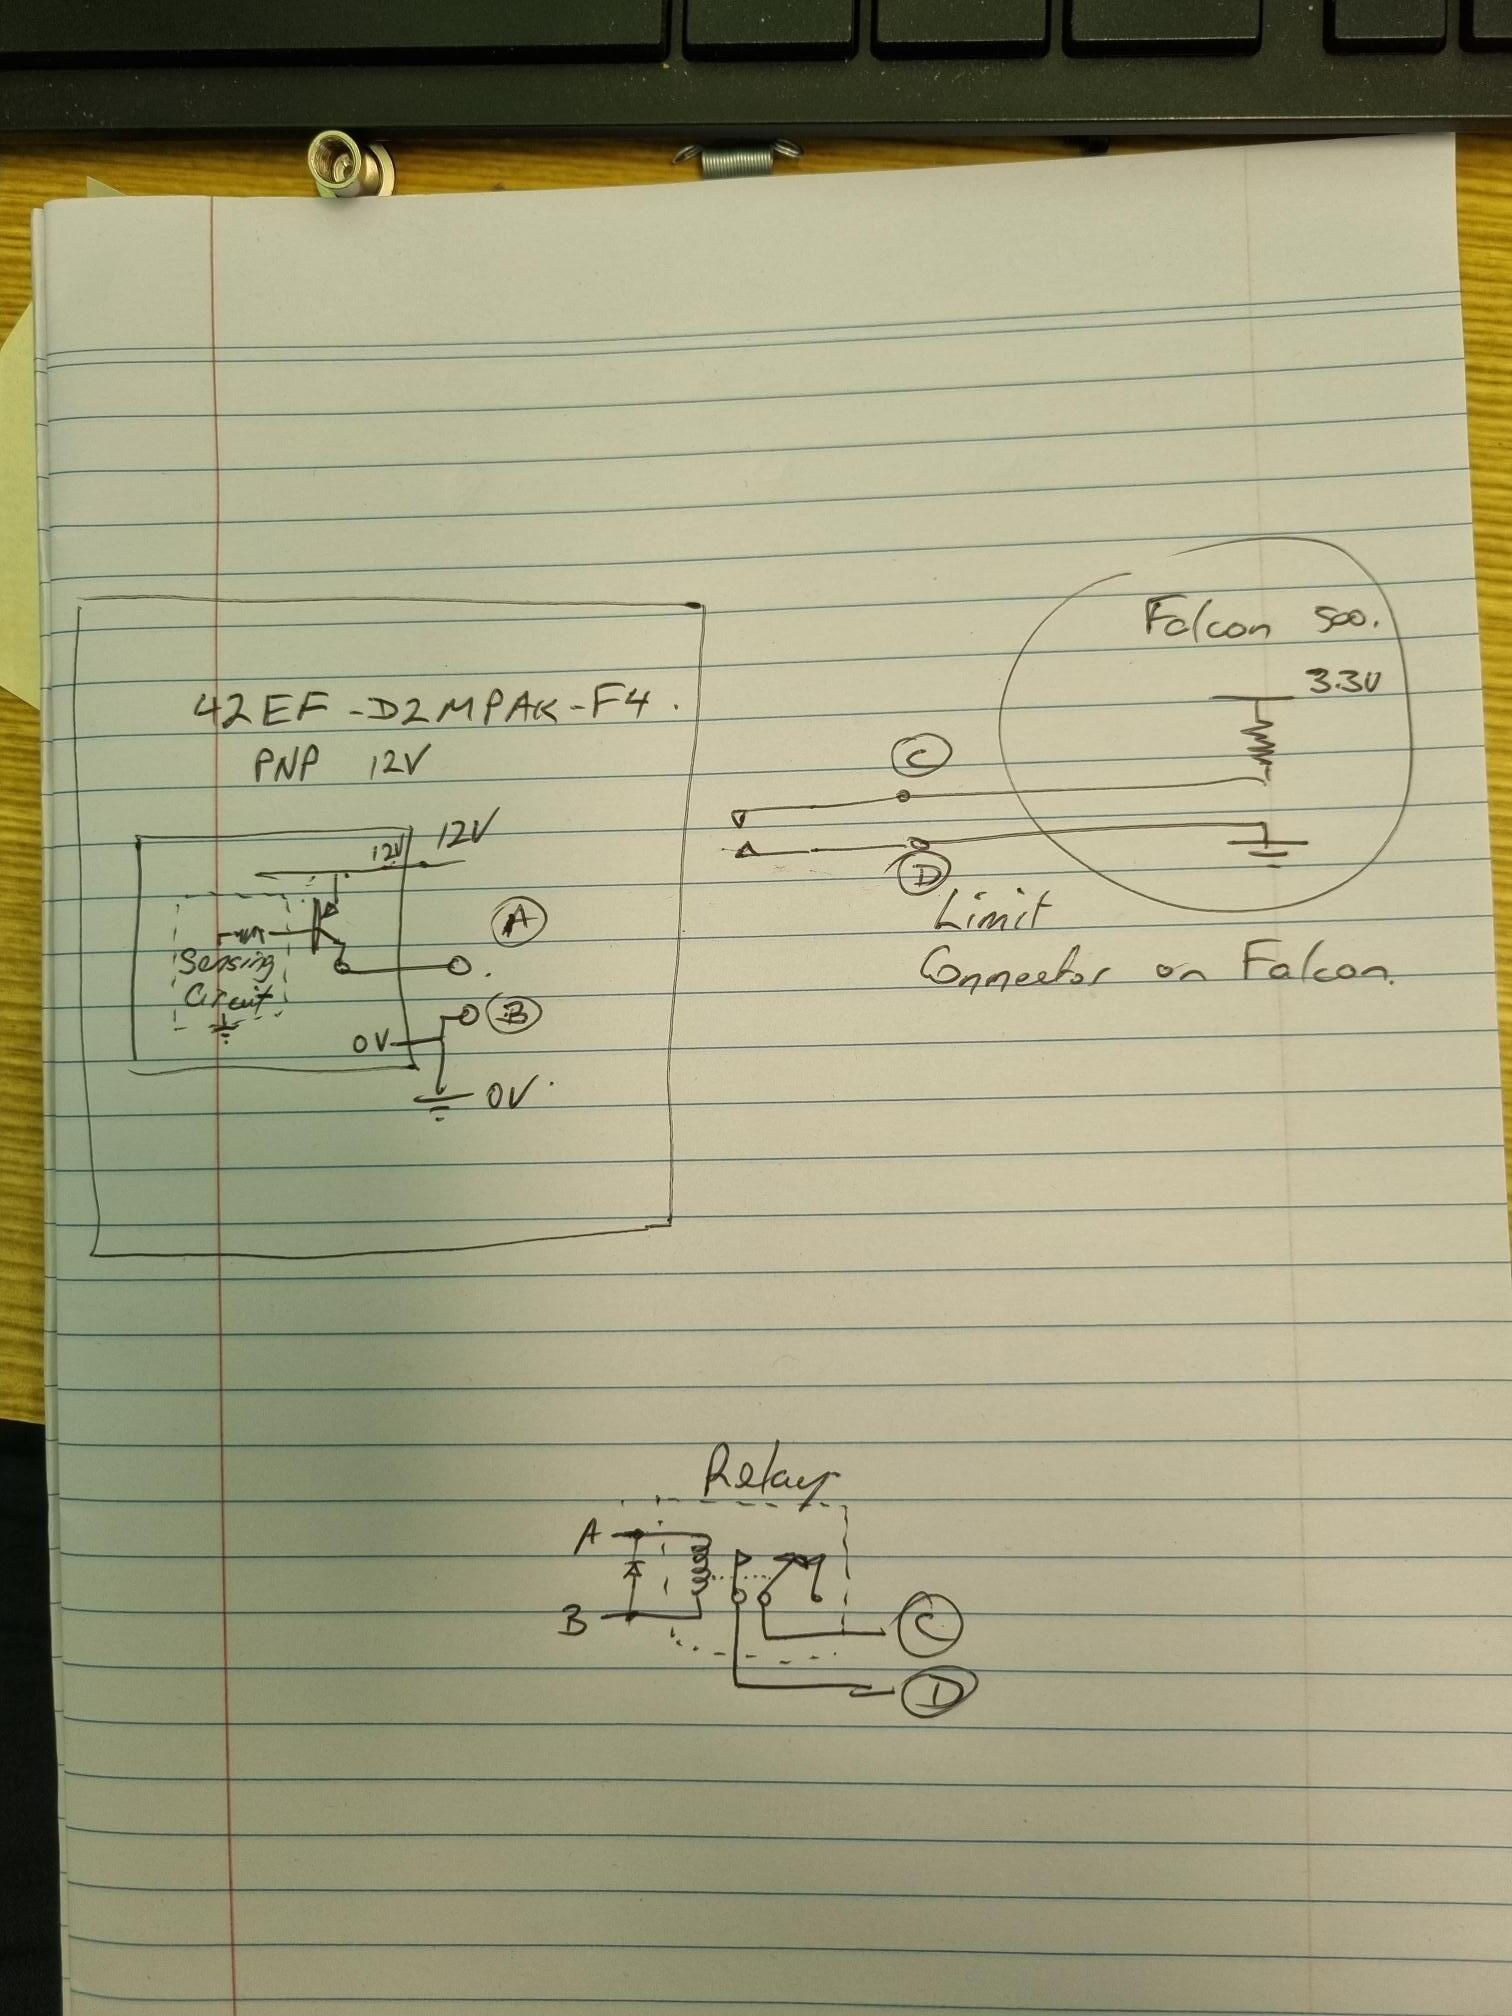 42EF-D2MPAK-F4.
PNP 12V
12V
12V
A
Sensing
Circuit
B
0V
0V.
Falcon 500.
3.3V
C
D
Limit
Connector on Falcon.
Relay
A
B
C
D